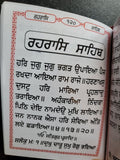 ਰਹਰਾਸਿ
੧੨੦
ਰਹਰਾਸਿ ਸਾਹਿਬ
ਹਰਿ ਜੁਗੁ ਜੁਗੁ ਭਗਤ ਉਪਾਇਆ ਪੈਜ
ਰਖਦਾ ਆਇਆ ਰਾਮ ਰਾਜੇ॥ ਹਰਣਾਖਸੁ
ਦੁਸਟੁ ਹਰਿ ਮਾਰਿਆ ਪ੍ਰਹਲਾਦੁ
ਤਰਾਇਆ॥ ਅਹੰਕਾਰੀਆ ਨਿੰਦਕਾ
ਪਿਠਿ ਦੇਇ ਨਾਮਦੇਉ ਮੁਖਿ ਲਾਇਆ॥
ਜਨ ਨਾਨਕ ਐਸਾ ਹਰਿ ਸੇਵਿਆ ਅੰਤਿ
ਲਏ ਛਡਾਇਆ॥
ਸਲੋਕੁ ਮਃ ੧ ॥ ਦੁਖੁ ਦਾਰੂ ਸੁਖੁ ਰੋਗੁ ਭਇਆ